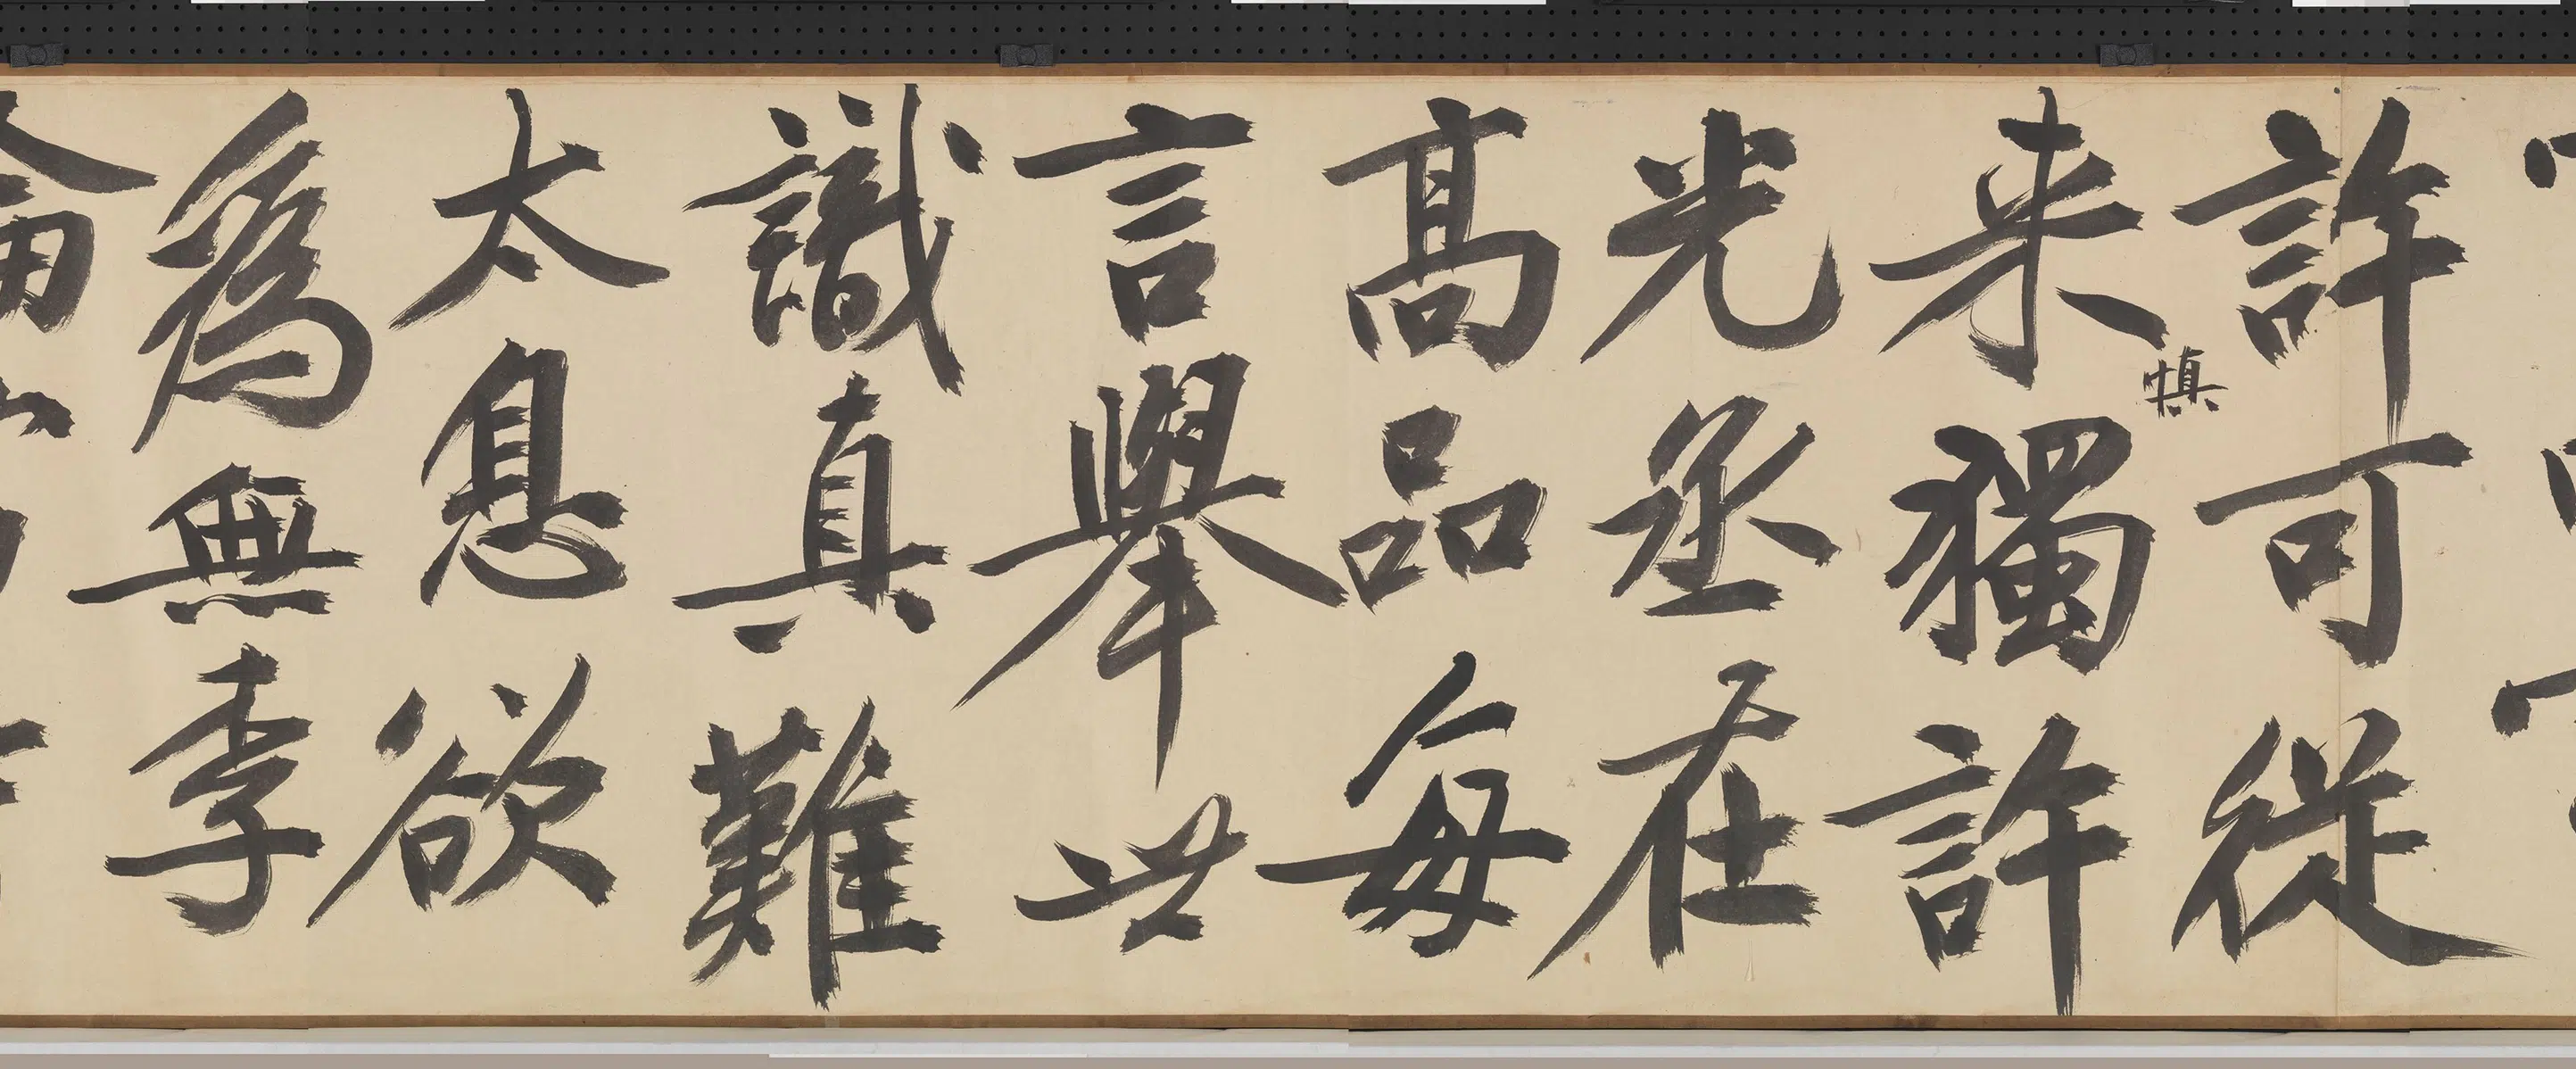 許可從
慎
来獨許
光丞在
髙品每
言舉世
識真難
太息欲
為無季